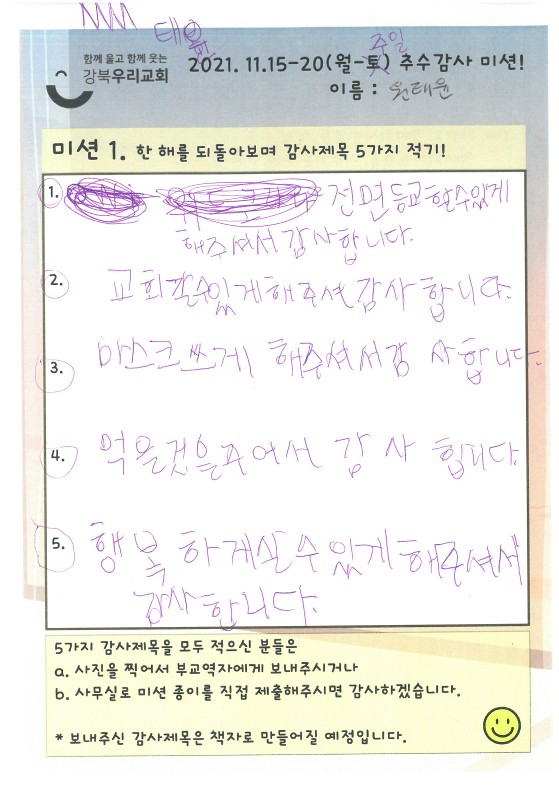 태윤
함께 울고 함께 웃는
강북우리교회
주일
2021. 11.15-20(월-토) 추수감사 미션!
이름 : 원태윤
미션 1. 한 해를 되돌아보며 감사제목 5가지 적기!
1. 전면등교할수있게
해주셔서 감사합니다.
2. 교회갈수있게해주셔감사합니다.
3. 마스크쓰게 해주셔서감 사합니다.
4. 먹을것을주어서 감 사 합니다.
5. 행복 하게살수있게 해주셔서
감사합니다.
5가지 감사제목을 모두 적으신 분들은
a. 사진을 찍어서 부교역자에게 보내주시거나
b. 사무실로 미션 종이를 직접 제출해주시면 감사하겠습니다.
* 보내주신 감사제목은 책자로 만들어질 예정입니다.